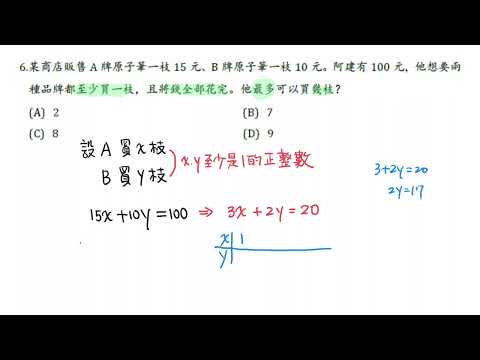 6.某商店販售 A 牌原子筆一枝 15 元、B 牌原子筆一枝 10 元。阿建有 100 元，他想要兩
種品牌都至少買一枝，且將錢全部花完。他最多可以買幾枝？
(A) 2 (B) 7
(C) 8 (D) 9
設 A 買 x 枝
B 買 y 枝
x.y 至少是1的正整數
15x+10y=100 ⇒ 3x+2y=20
x 1
y
3+2y=20
2y=17